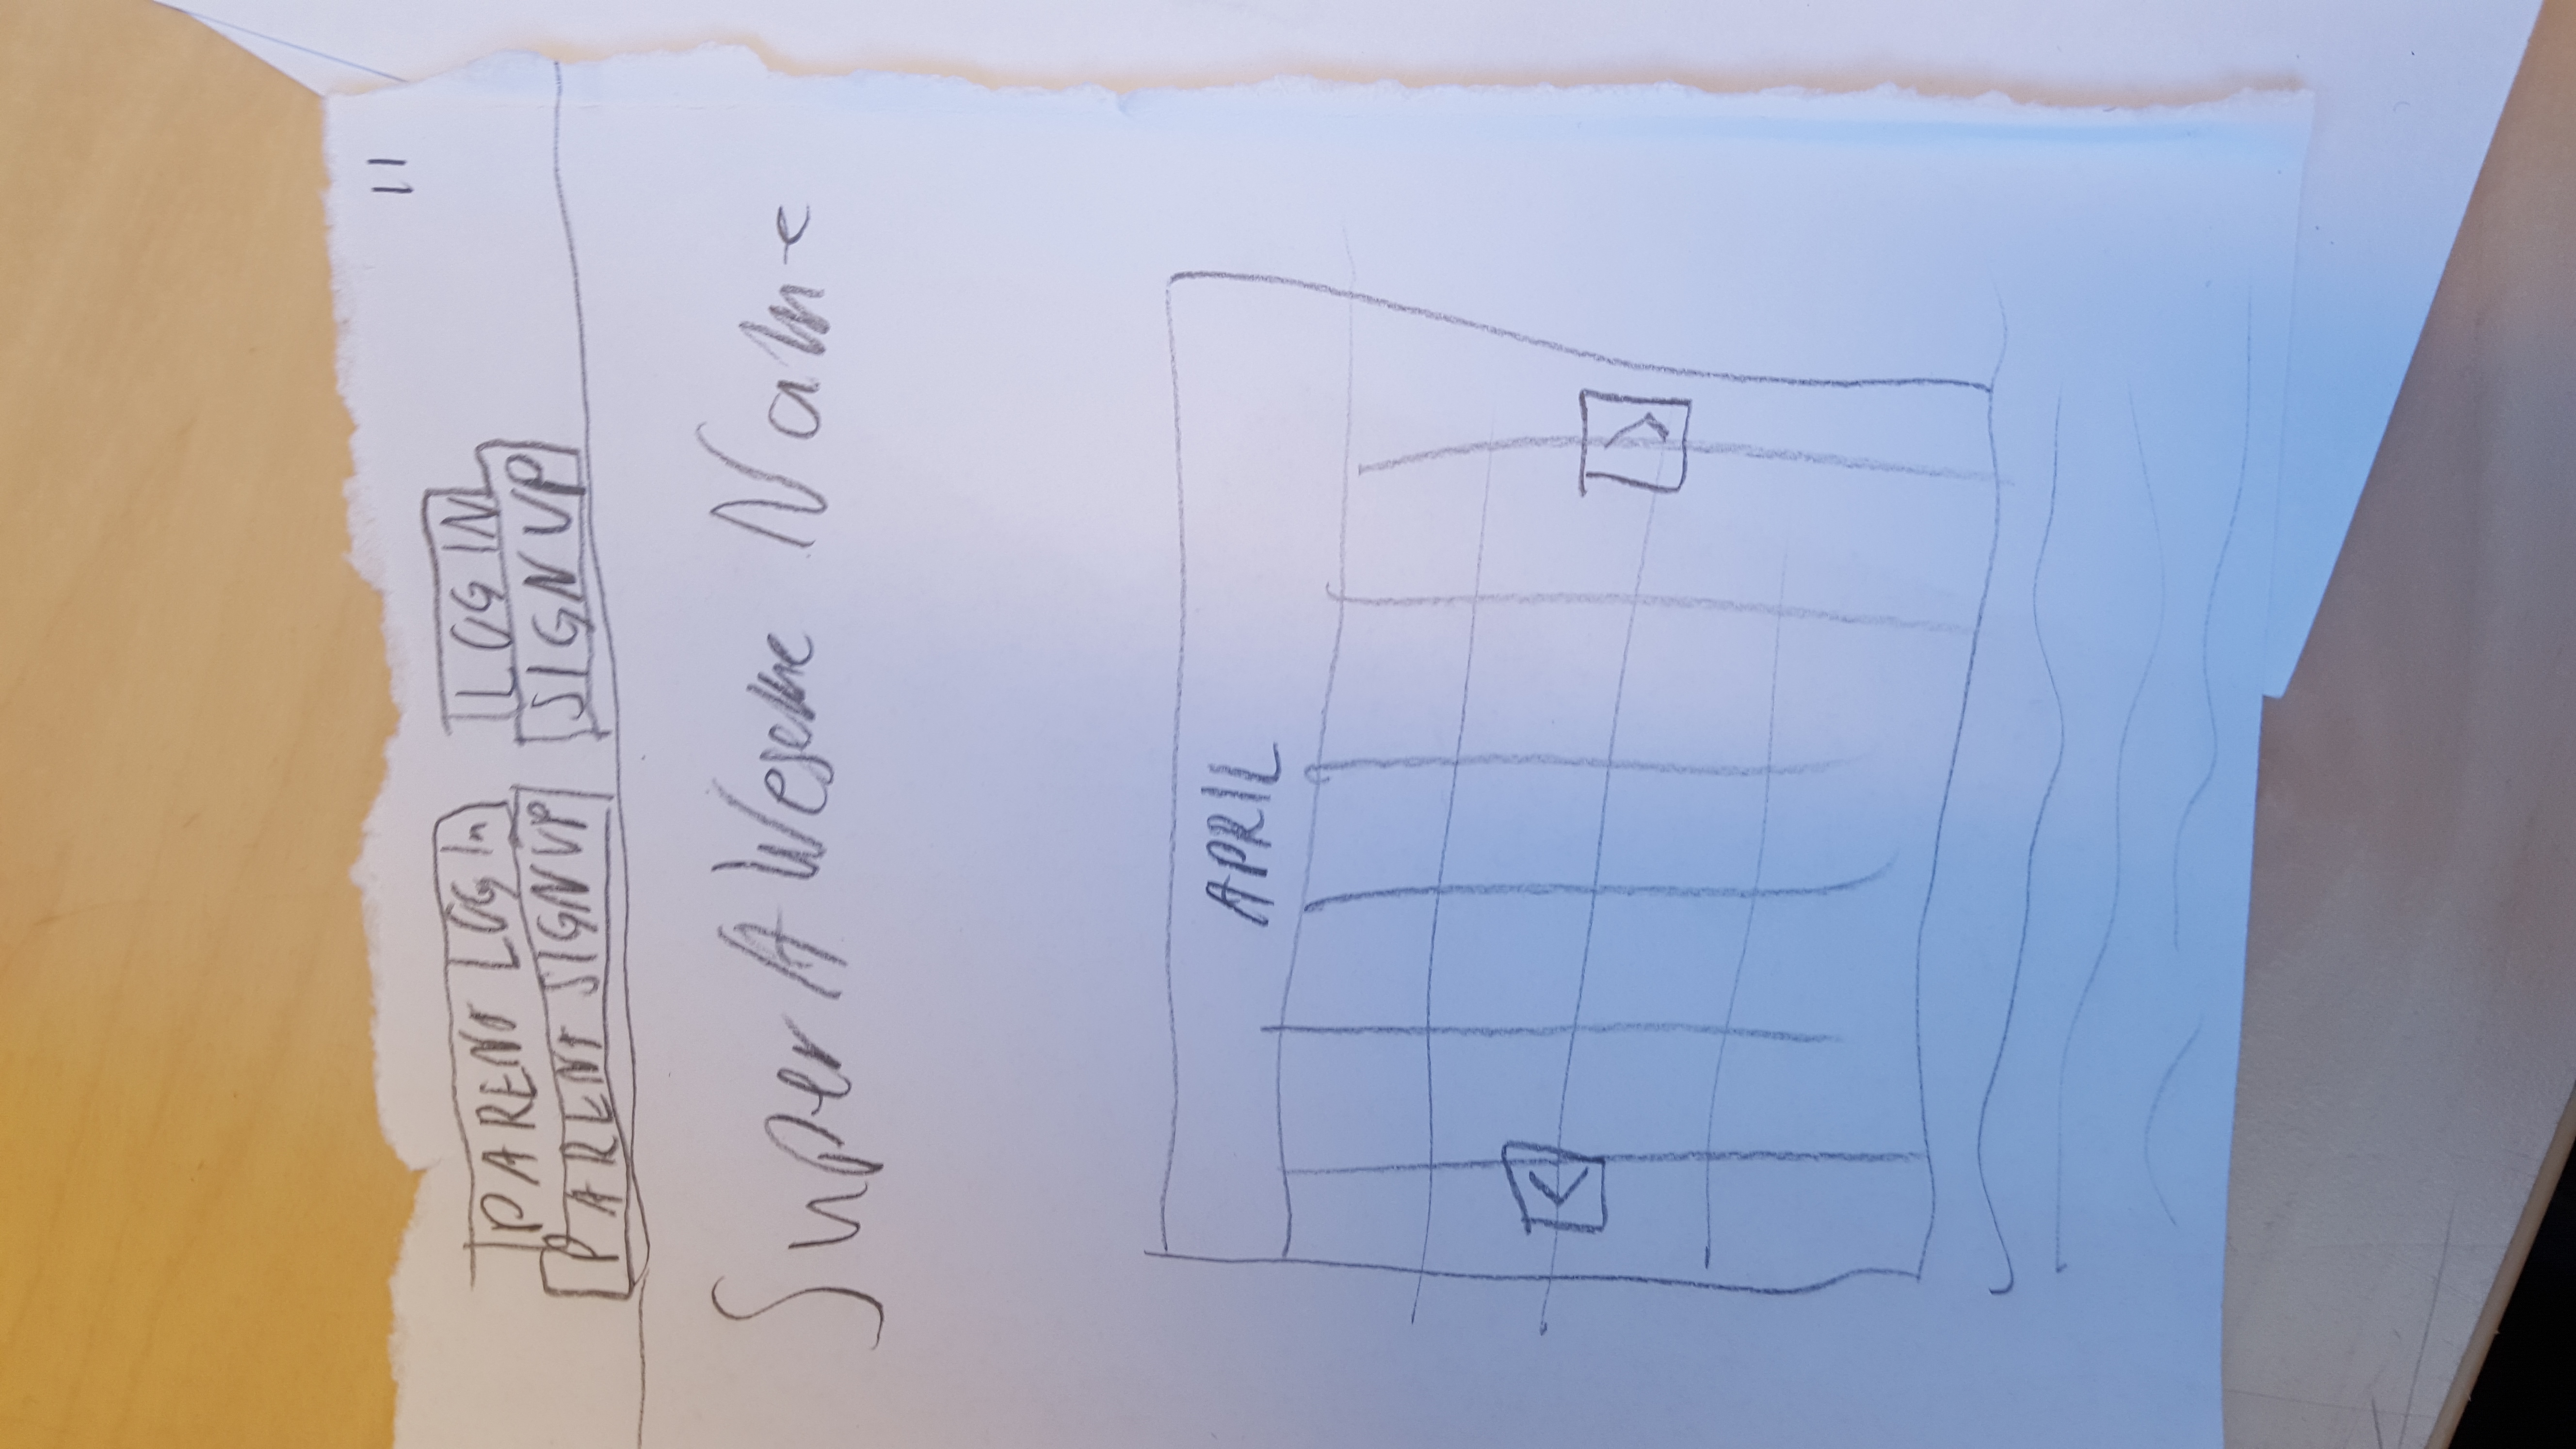 11
PARENT LOG In LOG IN
PARENT SIGN UP SIGN UP
Super AWesome Name
APRIL
<
>